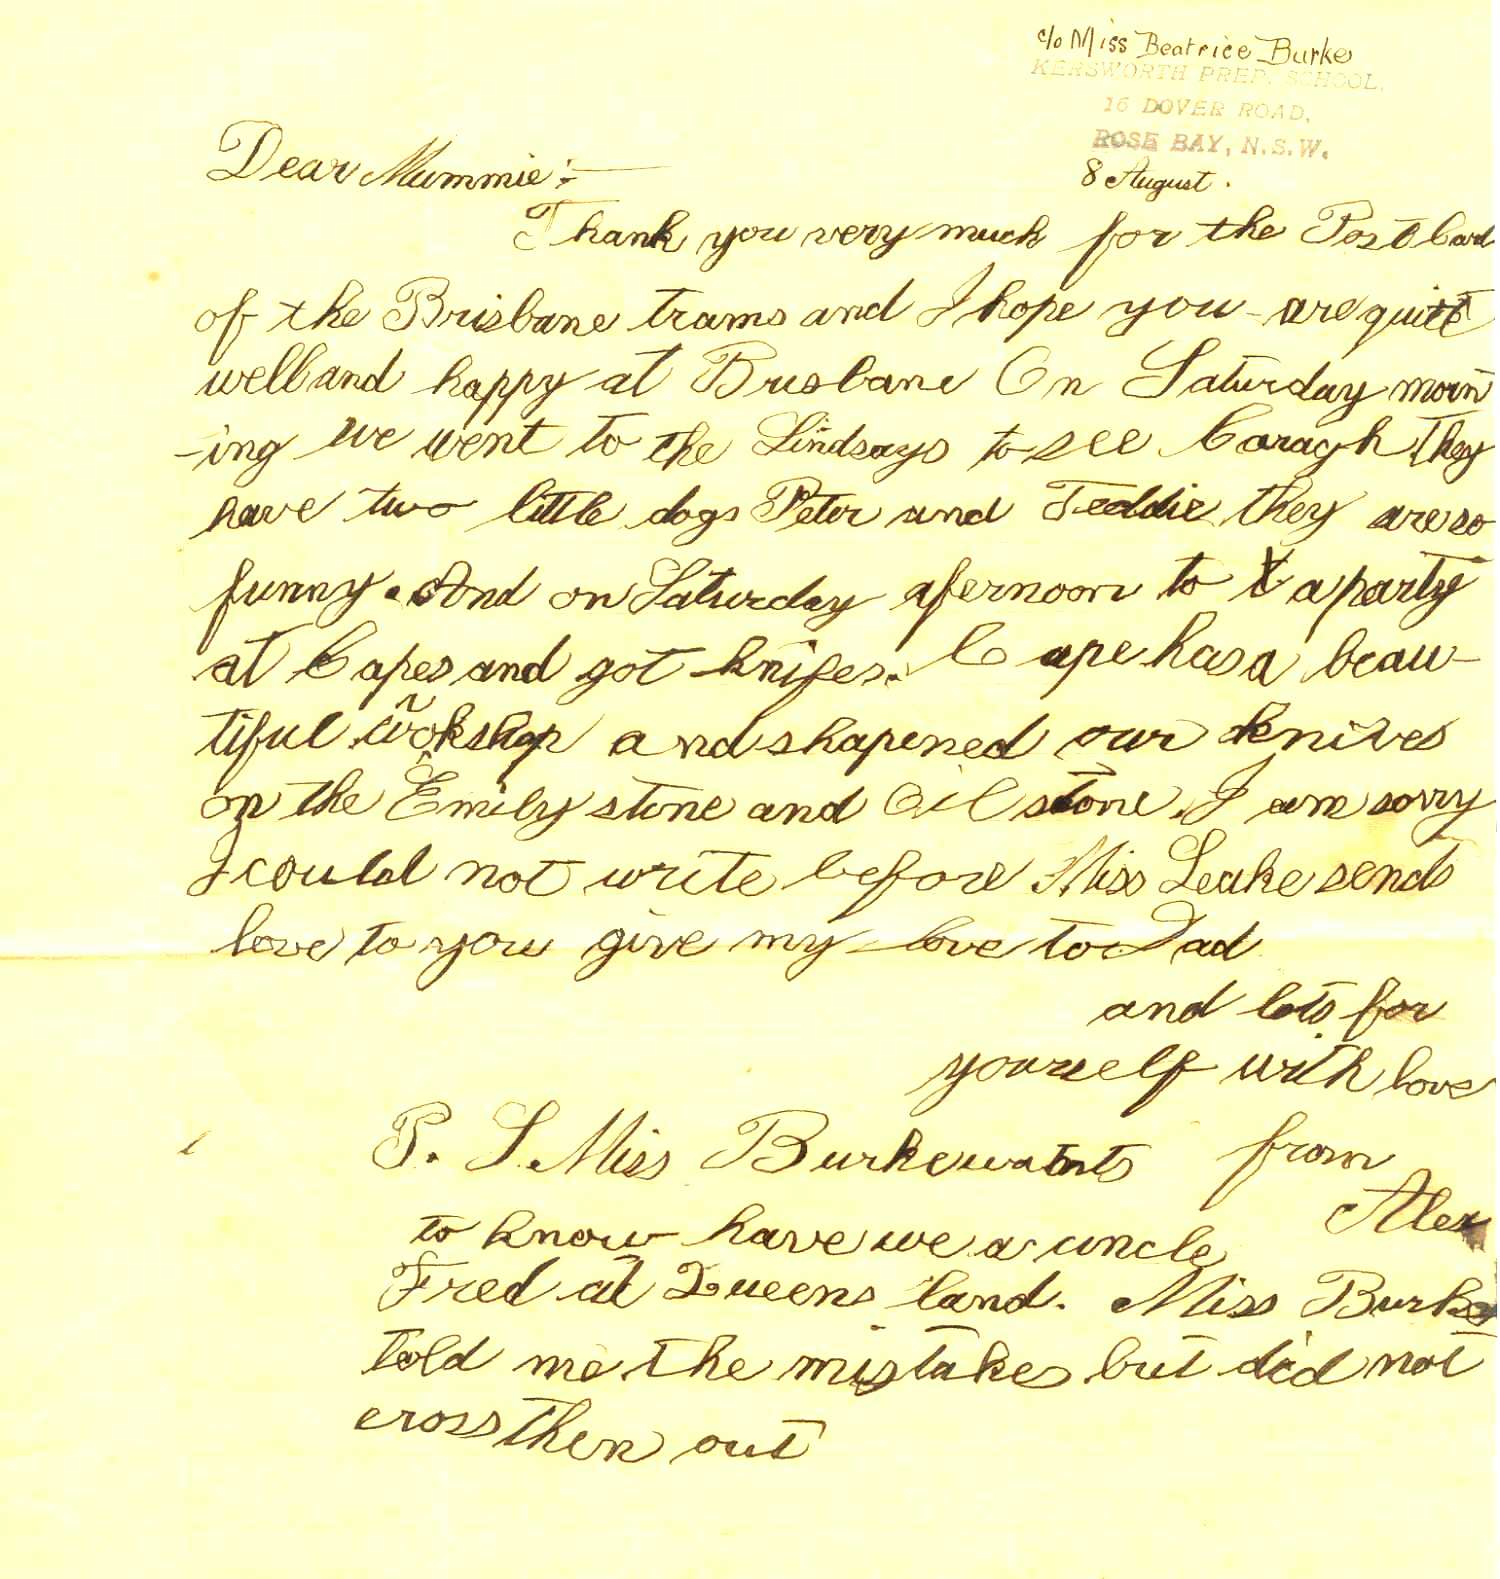 c/o Miss Beatrice Burke
KERSWORTH PREP. SCHOOL,
16 DOVER ROAD,
ROSE BAY, N.S.W.
8 August.
Dear Mummie :—
Thank you very much for the Post Card
of the Brisbane trams and I hope you are quite
well and happy at Brisbane On Saturday morn
-ing we went to the Lindsays to see Caragh They
have two little dogs Peter and Teddie they are so
funny. And on Saturday afernoon to a party
at Capes and got knifes. Cape has a beau-
tiful workshop and shapened our knives
on the Emily stone and Oil stone. I am sorry
I could not write before Miss Leake sends
love to you give my love to Dad
and lots for
yourself with love
from
Alex
P. S. Miss Burke wants
to know have we a uncle
Fred at Queens land. Miss Burke
told me the mistakes but did not
cross then out